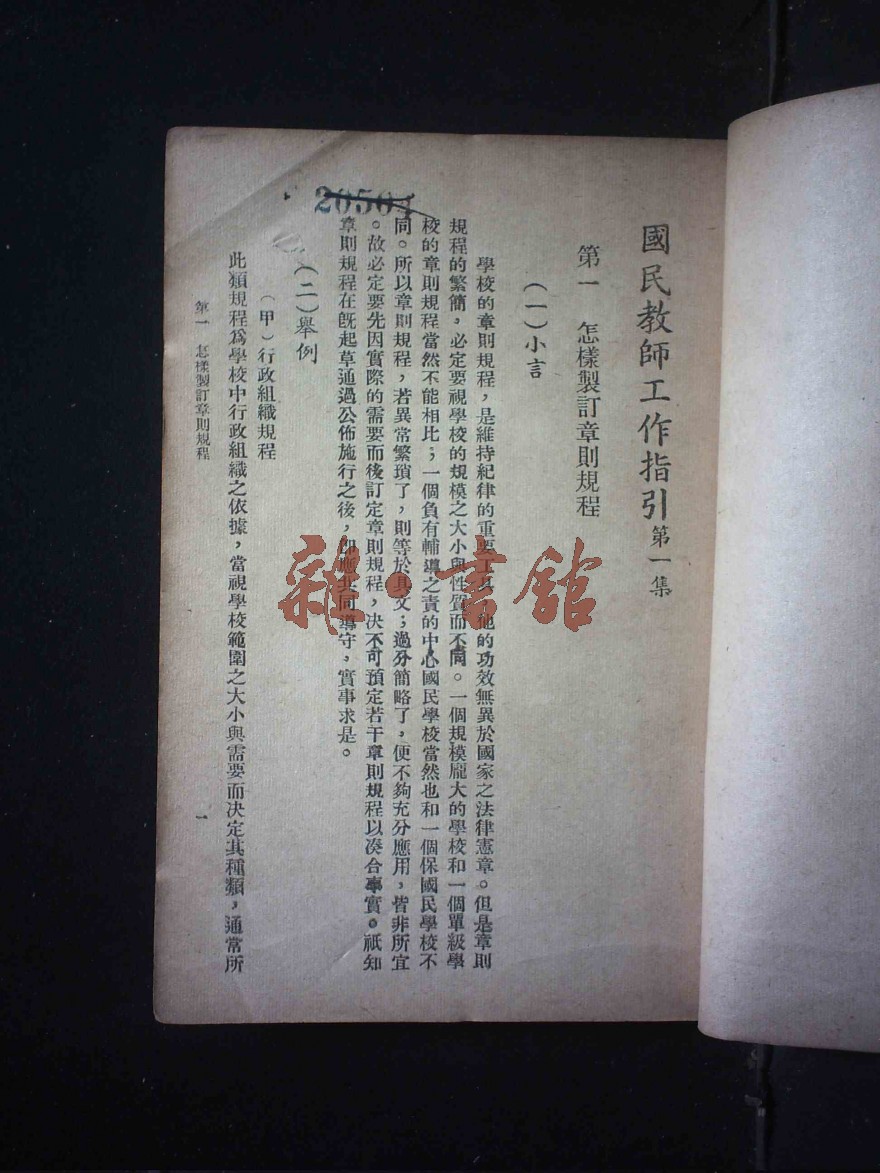 國民教師工作指引第一集
第一　怎樣製訂章則規程
（一）小言
學校的章則規程，是維持紀律的重要工具，他的功效無異於國家之法律憲章。但是章則
規程的繁簡，必定要視學校的規模之大小與性質而不同。一個規模龐大的學校和一個單級學
校的章則規程當然不能相比；一個負有輔導之責的中心國民學校當然也和一個保國民學校不
同。所以章則規程，若異常繁瑣了，則等於具文；過分簡略了，便不夠充分應用，皆非所宜
。故必定要先因實際的需要而後訂定章則規程，決不可預定若干章則規程以湊合事實。祇知
章則規程在旣起草通過公佈施行之後，卽應共同遵守，實事求是。
（二）舉例
（甲）行政組織規程
此類規程爲學校中行政組織之依據，當視學校範圍之大小與需要而決定其種類，通常所
第一　怎樣製訂章則規程
一
20504
雜·書館